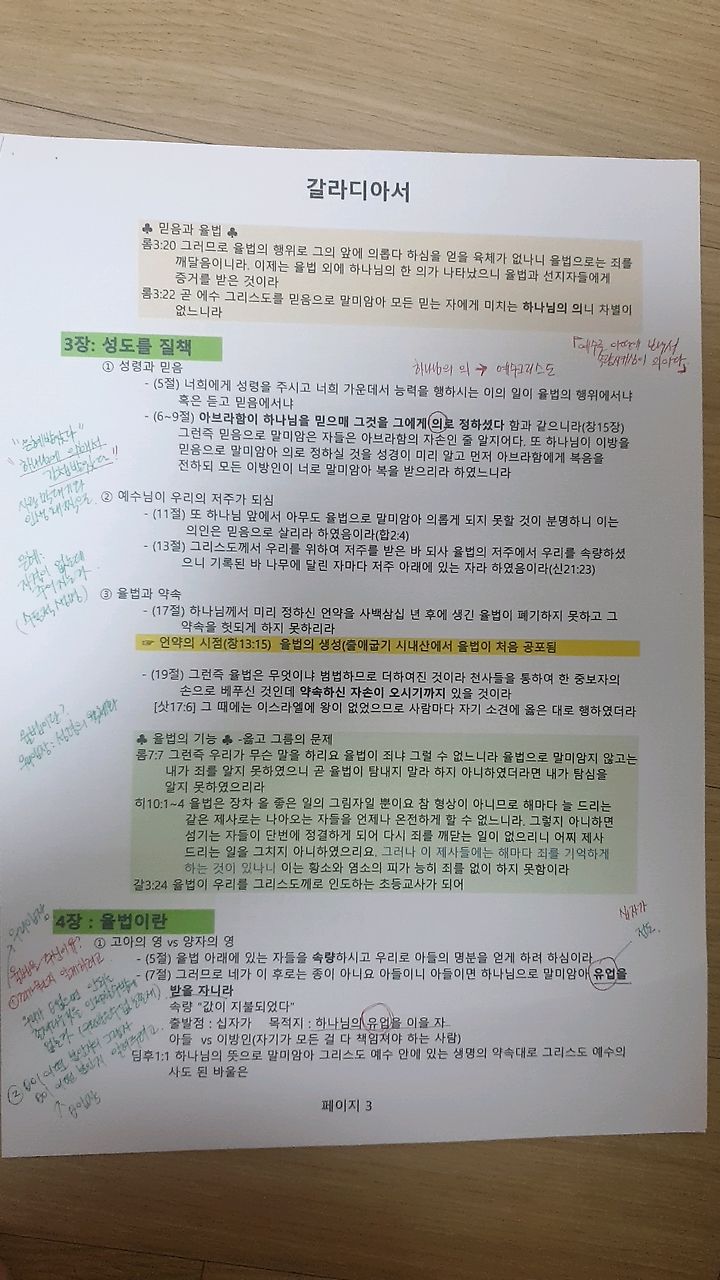 갈라디아서
♣ 믿음과 율법 ♣
롬3:20 그러므로 율법의 행위로 그의 앞에 의롭다 하심을 얻을 육체가 없나니 율법으로는 죄를
깨달음이니라. 이제는 율법 외에 하나님의 한 의가 나타났으니 율법과 선지자들에게
증거를 받은 것이라
롬3:22 곧 예수 그리스도를 믿음으로 말미암아 모든 믿는 자에게 미치는 하나님의 의니 차별이
없느니라
3장: 성도를 질책
① 성령과 믿음
하나님의 의 → 예수그리스도
- (5절) 너희에게 성령을 주시고 너희 가운데서 능력을 행하시는 이의 일이 율법의 행위에서냐
혹은 듣고 믿음에서냐
- (6~9절) 아브라함이 하나님을 믿으매 그것을 그에게 의로 정하셨다 함과 같으니라(창15장)
그런즉 믿음으로 말미암은 자들은 아브라함의 자손인 줄 알지어다. 또 하나님이 이방을
믿음으로 말미암아 의로 정하실 것을 성경이 미리 알고 먼저 아브라함에게 복음을
전하되 모든 이방인이 너로 말미암아 복을 받으리라 하였느니라
② 예수님이 우리의 저주가 되심
- (11절) 또 하나님 앞에서 아무도 율법으로 말미암아 의롭게 되지 못할 것이 분명하니 이는
의인은 믿음으로 살리라 하였음이라(합2:4)
- (13절) 그리스도께서 우리를 위하여 저주를 받은 바 되사 율법의 저주에서 우리를 속량하셨
으니 기록된 바 나무에 달린 자마다 저주 아래에 있는 자라 하였음이라(신21:23)
은혜:
③ 율법과 약속
- (17절) 하나님께서 미리 정하신 언약을 사백삼십 년 후에 생긴 율법이 폐기하지 못하고 그
약속을 헛되게 하지 못하리라
☞ 언약의 시점(창13:15) 율법의 생성(출애굽기 시내산에서 율법이 처음 공포됨
- (19절) 그런즉 율법은 무엇이냐 범법하므로 더하여진 것이라 천사들을 통하여 한 중보자의
손으로 베푸신 것인데 약속하신 자손이 오시기까지 있을 것이라
[삿17:6] 그 때에는 이스라엘에 왕이 없었으므로 사람마다 자기 소견에 옳은 대로 행하였더라
율법이란?
♣ 율법의 기능 ♣ -옳고 그름의 문제
롬7:7 그런즉 우리가 무슨 말을 하리요 율법이 죄냐 그럴 수 없느니라 율법으로 말미암지 않고는
내가 죄를 알지 못하였으니 곧 율법이 탐내지 말라 하지 아니하였더라면 내가 탐심을
알지 못하였으리라
히10:1~4 율법은 장차 올 좋은 일의 그림자일 뿐이요 참 형상이 아니므로 해마다 늘 드리는
같은 제사로는 나아오는 자들을 언제나 온전하게 할 수 없느니라. 그렇지 아니하면
섬기는 자들이 단번에 정결하게 되어 다시 죄를 깨닫는 일이 없으리니 어찌 제사
드리는 일을 그치지 아니하였으리요. 그러나 이 제사들에는 해마다 죄를 기억하게
하는 것이 있나니 이는 황소와 염소의 피가 능히 죄를 없이 하지 못함이라
갈3:24 율법이 우리를 그리스도께로 인도하는 초등교사가 되어
4장 : 율법이란
십자가
전도
① 고아의 영 vs 양자의 영
- (5절) 율법 아래에 있는 자들을 속량하시고 우리로 아들의 명분을 얻게 하려 하심이라
- (7절) 그러므로 네가 이 후로는 종이 아니요 아들이니 아들이면 하나님으로 말미암아 유업을
받을 자니라
속량 "값이 지불되었다"
출발점 : 십자가 목적지 : 하나님의 유업을 이을 자
아들 vs 이방인(자기가 모든 걸 다 책임져야 하는 사람)
딤후1:1 하나님의 뜻으로 말미암아 그리스도 예수 안에 있는 생명의 약속대로 그리스도 예수의
사도 된 바울은
페이지 3